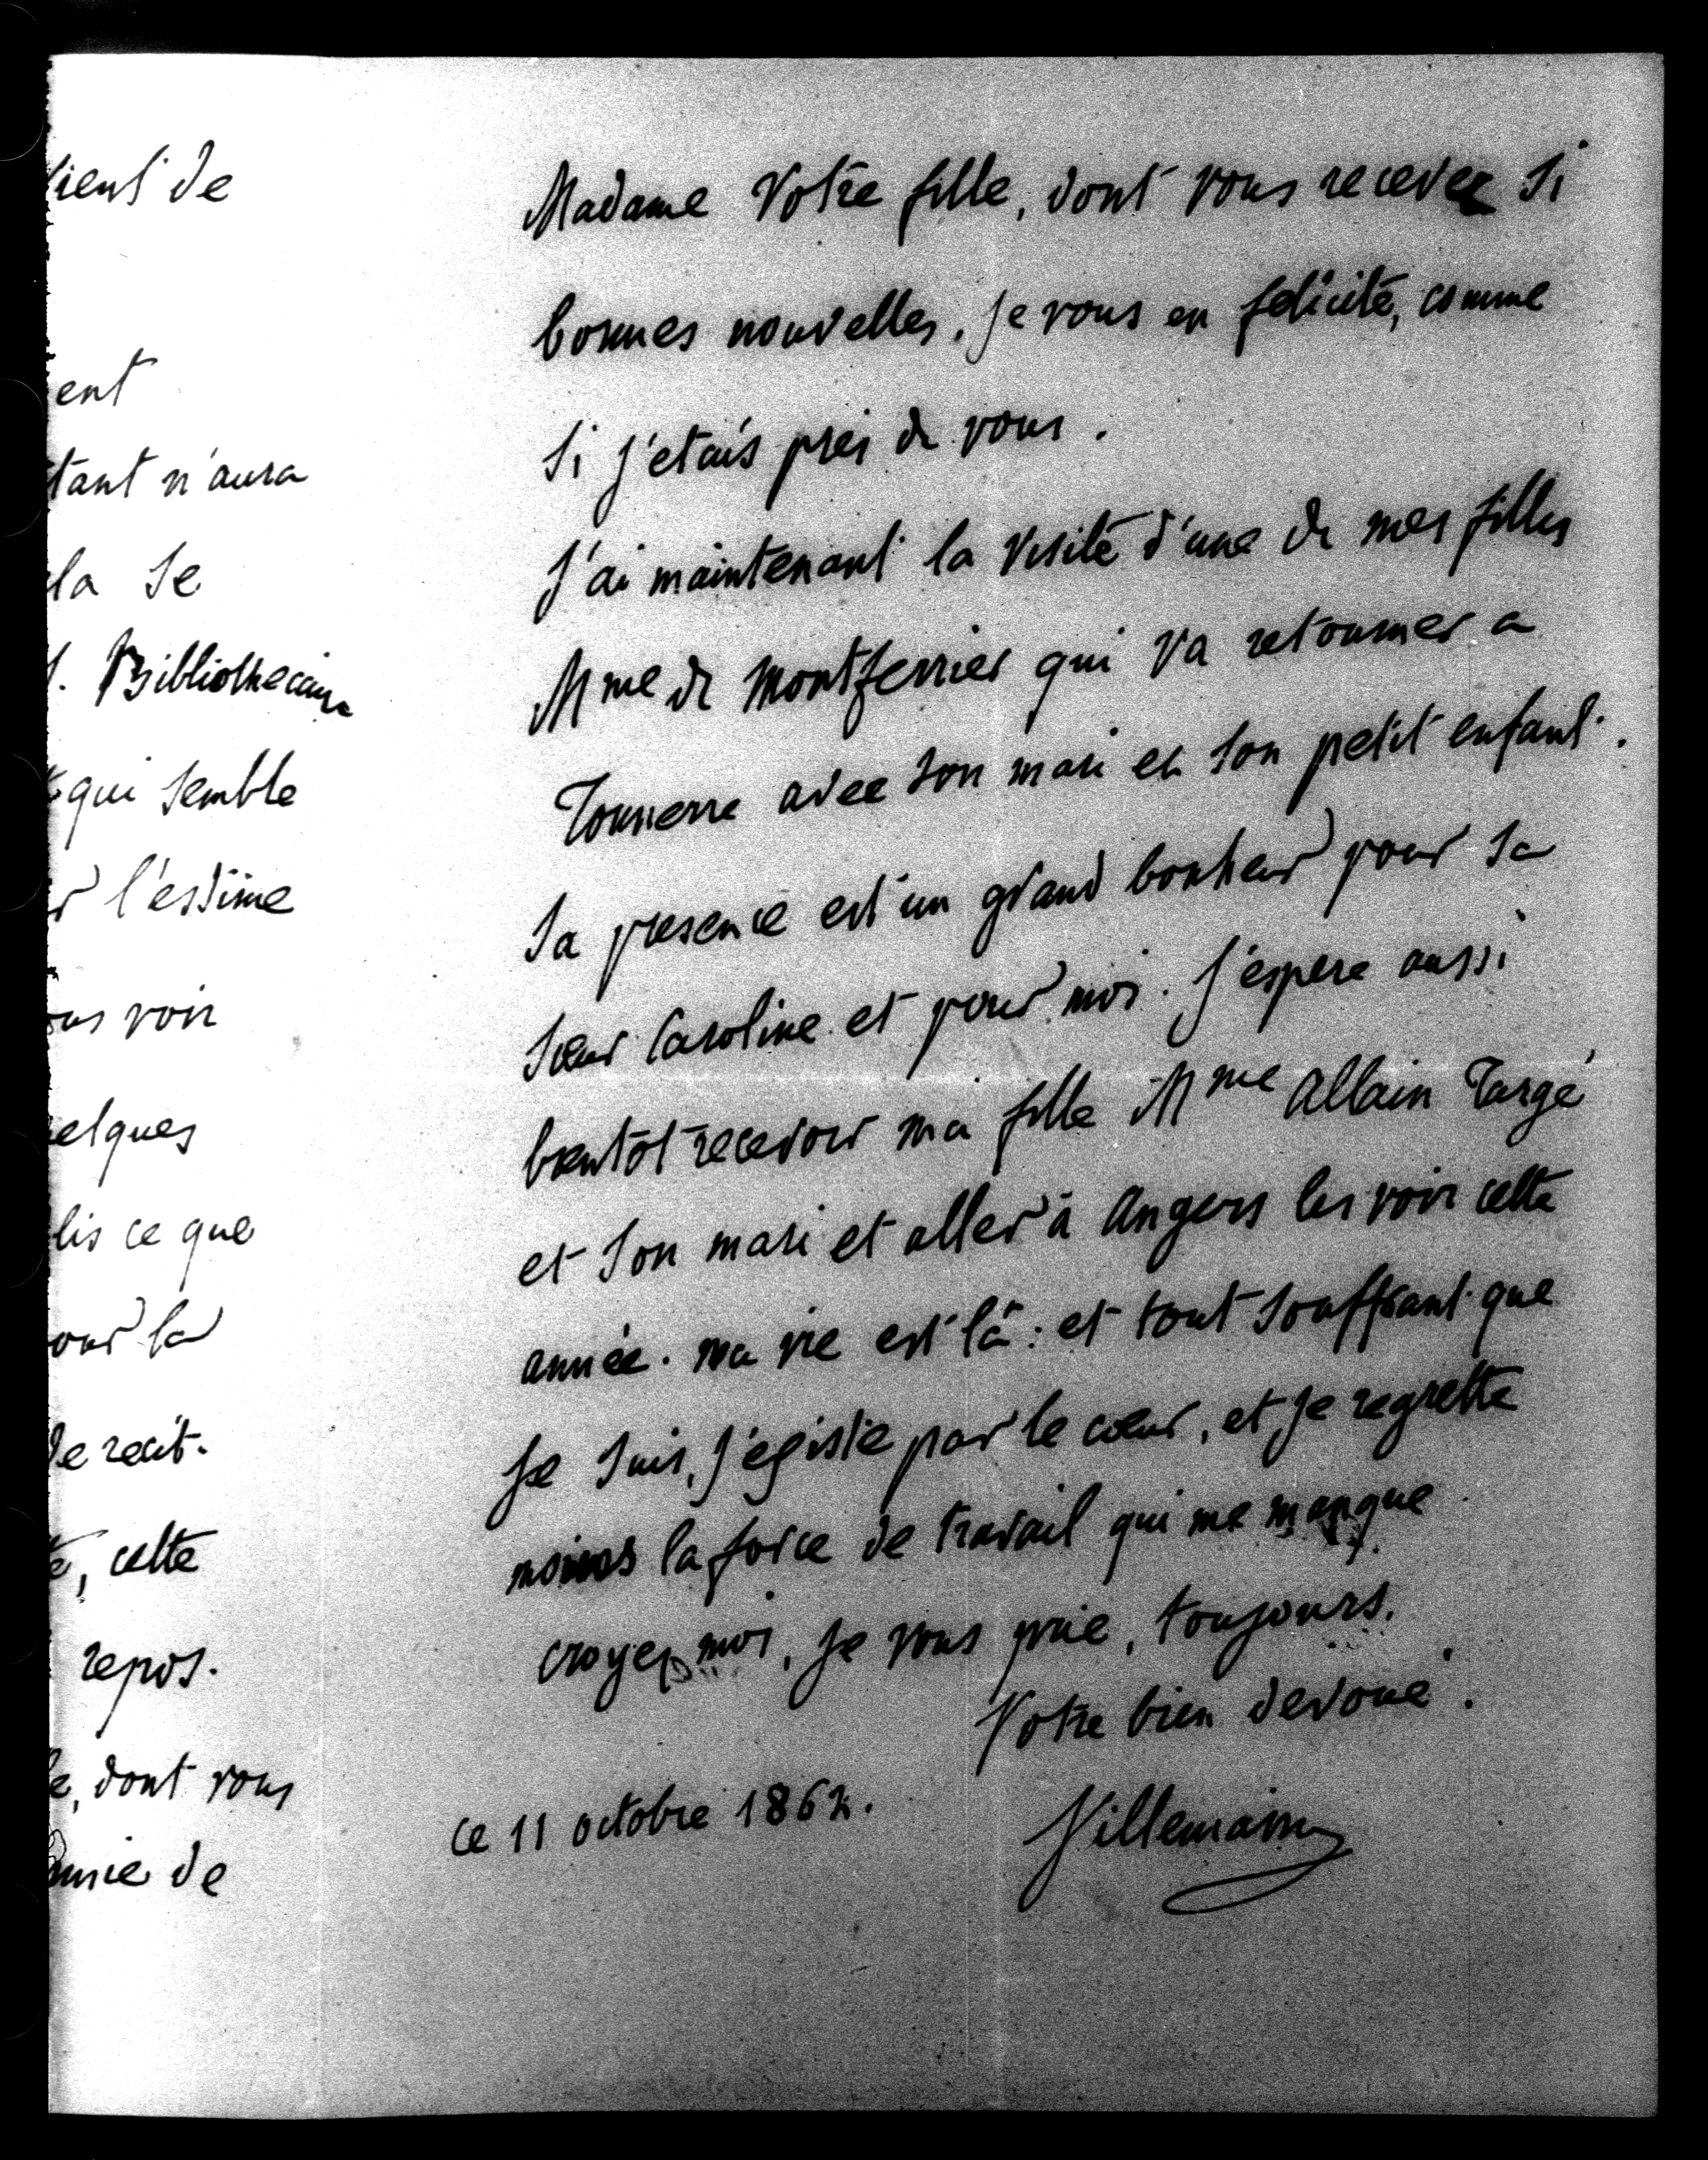 ient de
ent
tant n'aura
la se
. Bibliothecaire
qui semble
l'estime
voir
elques
lis ce que
our la
de recit.
, cette
repos.
, dont vous
de
Madame Votre fille, dont vous recevez si
bonnes nouvelles. Je vous en felicite, comme
si j'etais pres de vous.
J'ai maintenant la visite d'une de mes filles
Mme de Montferrier qui va retourner a
Tonnerre avec son mari et son petit enfant.
Sa presence est un grand bonheur pour sa
soeur Caroline et pour moi. J'espere aussi
bientôt recevoir ma fille Mme Allain Targé
et son mari et aller à Angers les voir cette
année. Ma vie est là: et tout souffrant que
Je suis, j'existe par le coeur, et je regrette
moins la force de travail qui me manque
croyez moi, je vous prie, toujours.
Votre bien devoué.
ce 11 octobre 1862.
Villemain